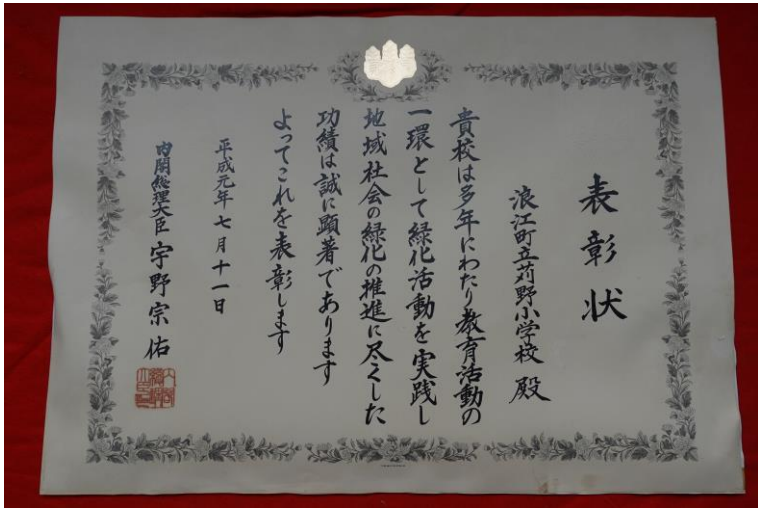 表彰状
浪江町立苅野小学校 殿
貴校は多年にわたり教育活動の
一環として緑化活動を実践し
地域社会の緑化の推進に尽くした
功績は誠に顕著であります
よってこれを表彰します
平成元年七月十一日
内閣総理大臣 宇野宗佑